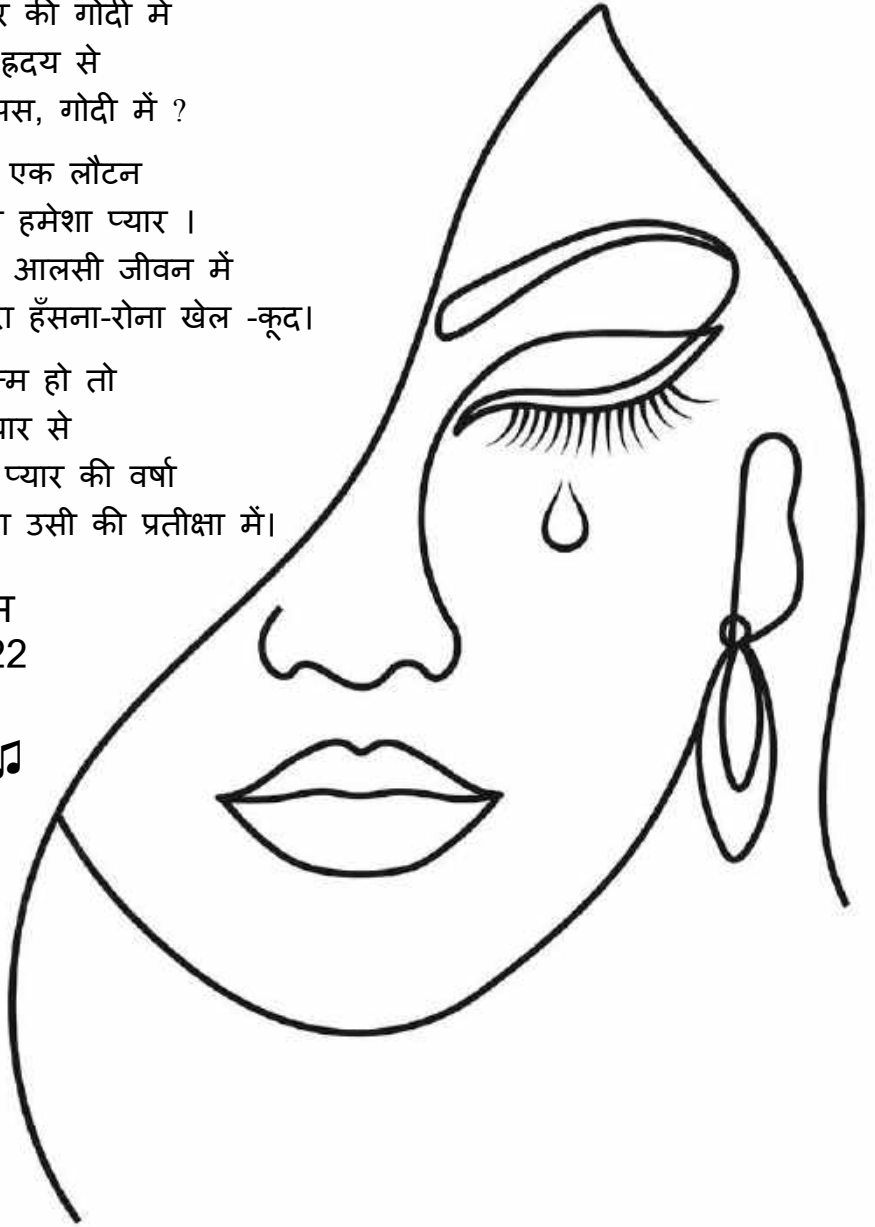 की गोदी में
हृदय से
गोदी में ?
एक लौटन
हमेशा प्यार ।
आलसी जीवन में
हँसना-रोना खेल -कूद।
हो तो
से
प्यार की वर्षा
उसी की प्रतीक्षा में।
22
♫